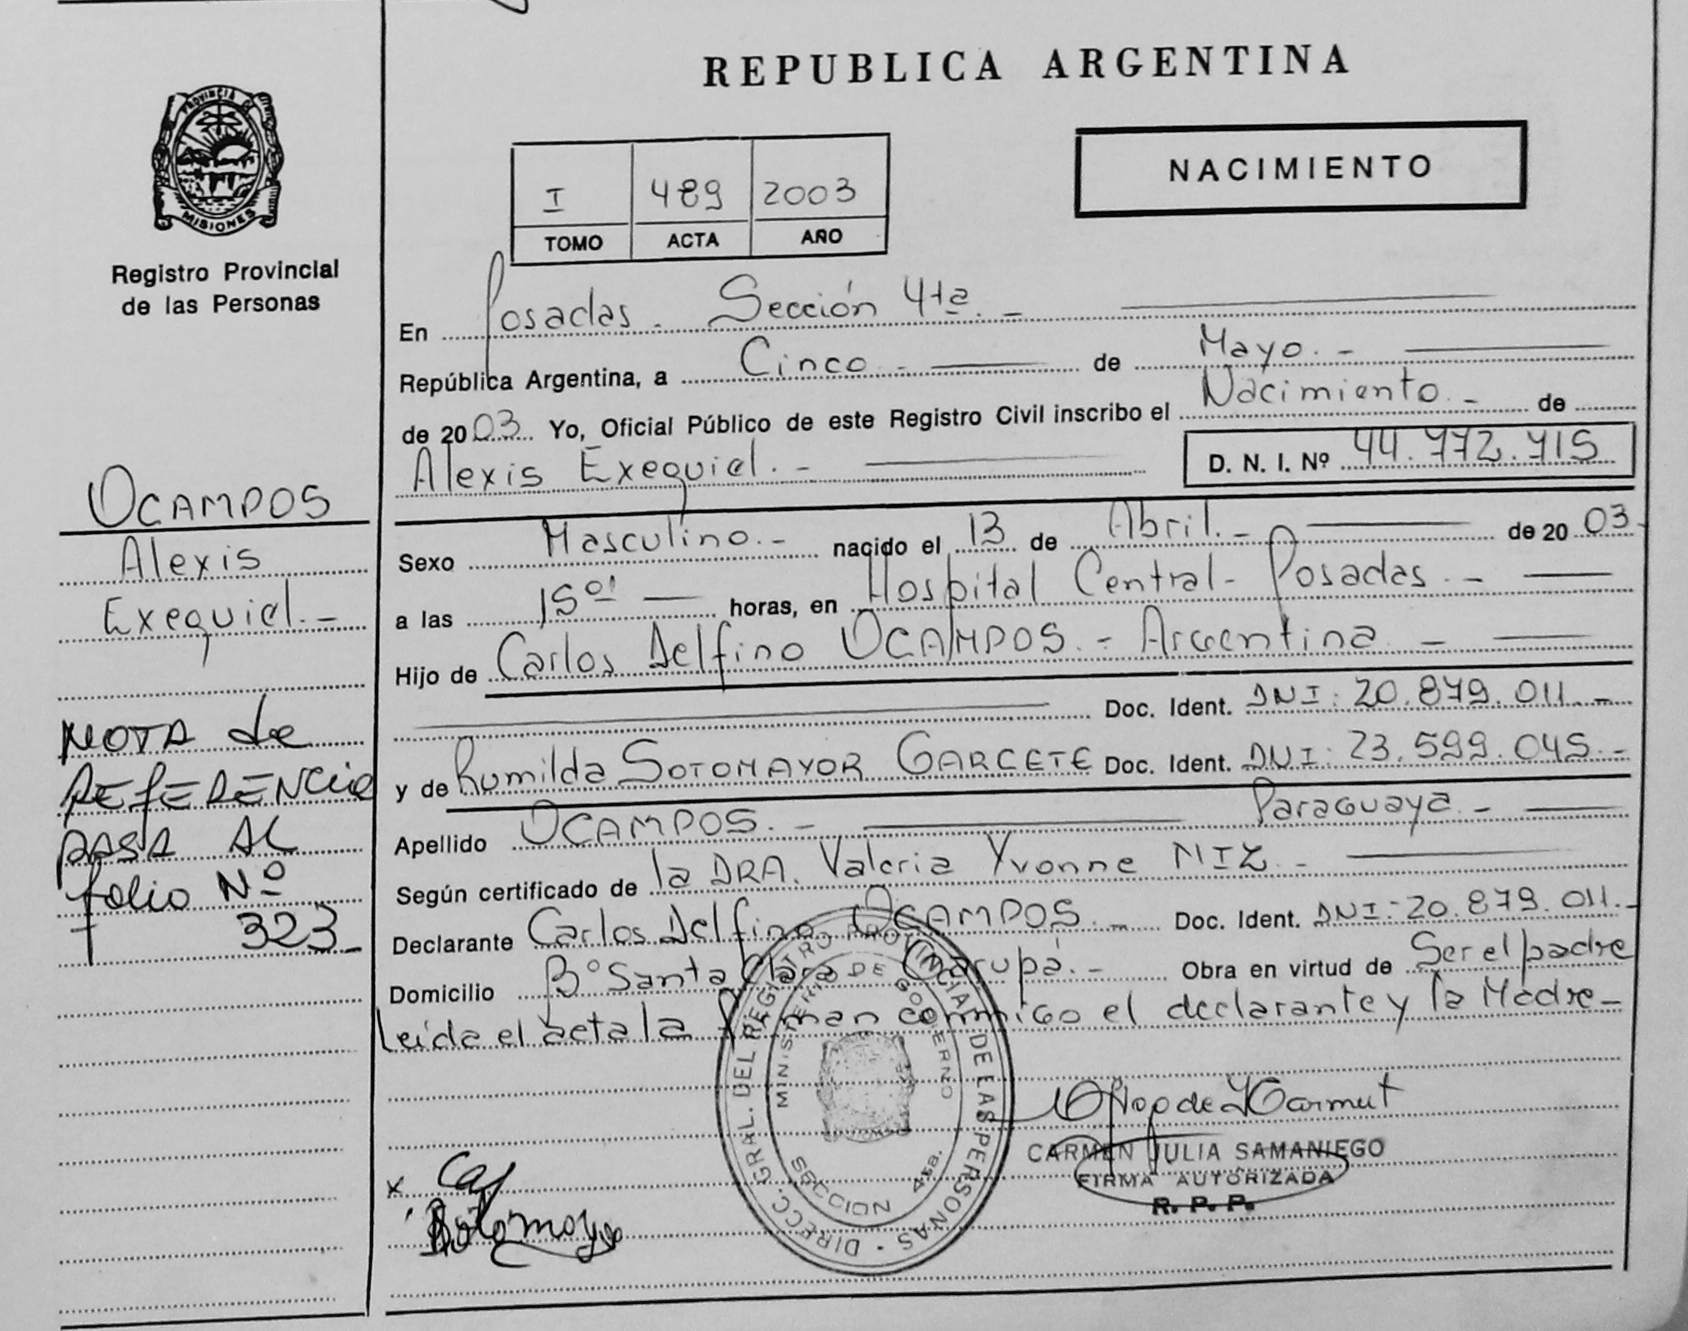 PROVINCIA DE
MISIONES
Registro Provincial
de las Personas
OCAMPOS
Alexis
Exequiel.-
NOTA de
REFERENCIA
PASA AL
folio Nº
323-
REPUBLICA ARGENTINA
NACIMIENTO
I 489 2003
TOMO ACTA AÑO
En Posadas. Sección 4ta.-
República Argentina, a Cinco.- de Mayo.-
de 2003. Yo, Oficial Público de este Registro Civil inscribo el Nacimiento.- de
Alexis Exequiel.- D. N. I. Nº 44.772.715
Sexo Masculino.- nacido el 13 de Abril.- de 2003.
a las 15 01 horas, en Hospital Central- Posadas.-
Hijo de Carlos Delfino OCAMPOS.- Argentina.-
Doc. Ident. DNI: 20.879.011.-
y de Rumilda SOTOMAYOR GARCETE Doc. Ident. DNI: 23.599.045.-
Paraguaya.-
Apellido OCAMPOS.-
Según certificado de la DRA. Valeria Yvonne NIZ.-
Declarante Carlos Delfino OCAMPOS.- Doc. Ident. DNI: 20.879.011.-
Domicilio Bº Santa Clara Garupá.- Obra en virtud de Ser el padre
Leida el acta la firman conmigo el declarante y la Madre-
DIRECC. GRAL. DEL REGISTRO PROVINCIAL DE LAS PERSONAS
MINISTERIO DE GOBIERNO
SECCION 4ta.
CARMEN JULIA SAMANIEGO
FIRMA AUTORIZADA
R. P. P.